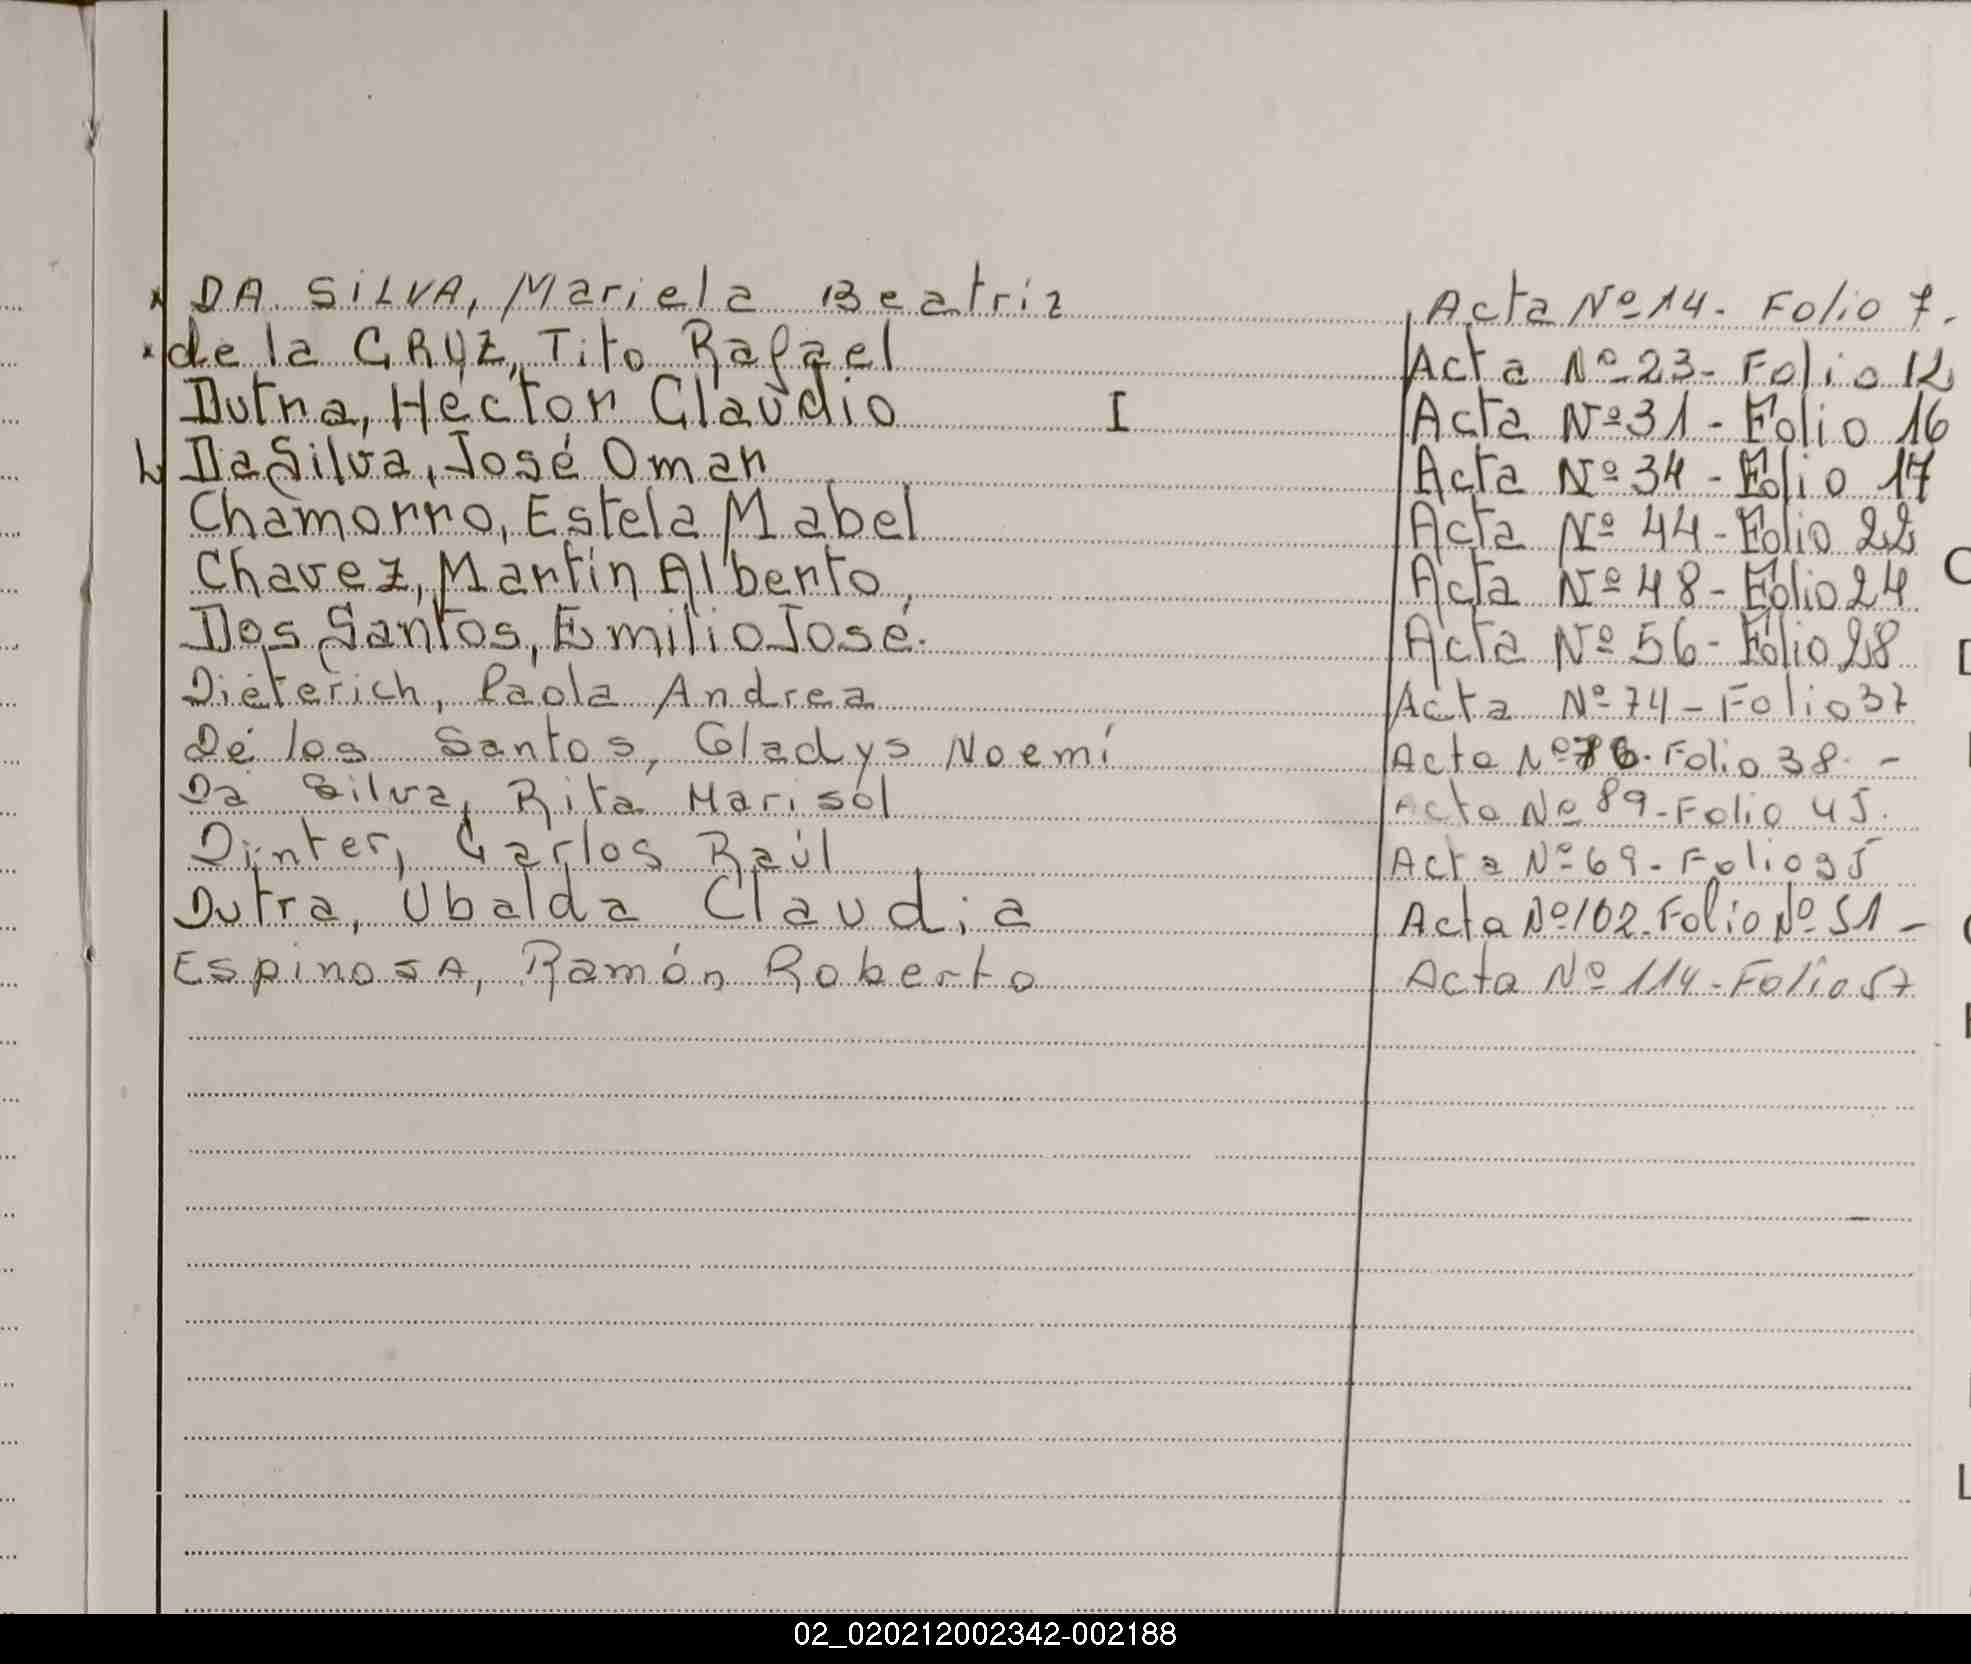 DA SILVA, Mariela Beatriz Acta Nº 14- Folio 7.
de la CRUZ, Tito Rafael Acta Nº 23- Folio 12
Dutra, Héctor Claudio I Acta Nº 31- Folio 16
Da Silva, José Omar Acta Nº 34- Folio 17
Chamorro, Estela Mabel Acta Nº 44- Folio 22
Chavez, Martín Alberto, Acta Nº 48- Folio 24
Dos Santos, Emilio José. Acta Nº 56- Folio 28
Dieterich, Paola Andrea Acta Nº 74- Folio 37
De los Santos, Gladys Noemí Acta Nº 76. Folio 38. -
Da Silva, Rita Marisol Acta Nº 89- Folio 45.
Dinter, Carlos Raúl Acta Nº 69- Folio 35
Dutra, Ubalda Claudia Acta Nº 102. Folio Nº 51 -
EspinosA, Ramón Roberto Acta Nº 114- Folio 57
02_020212002342-002188